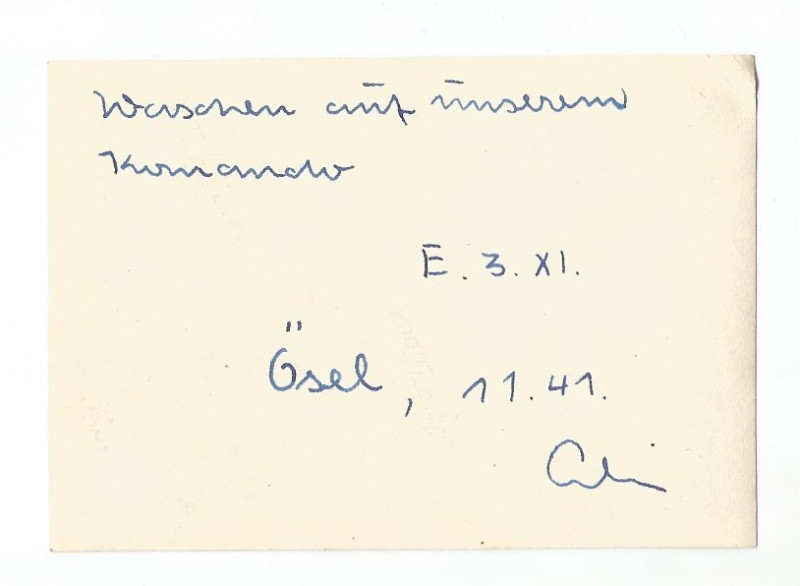 Waschen auf unserem
Komando
E. 3. XI.
Ösel, 11.41.